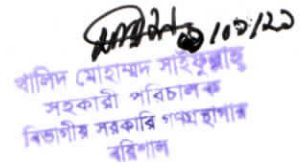 খালিদ মোহাম্মদ সাইফুল্লাহ
সহকারী পরিচালক
বিভাগীয় সরকারি গণগ্রন্থাগার
বরিশাল